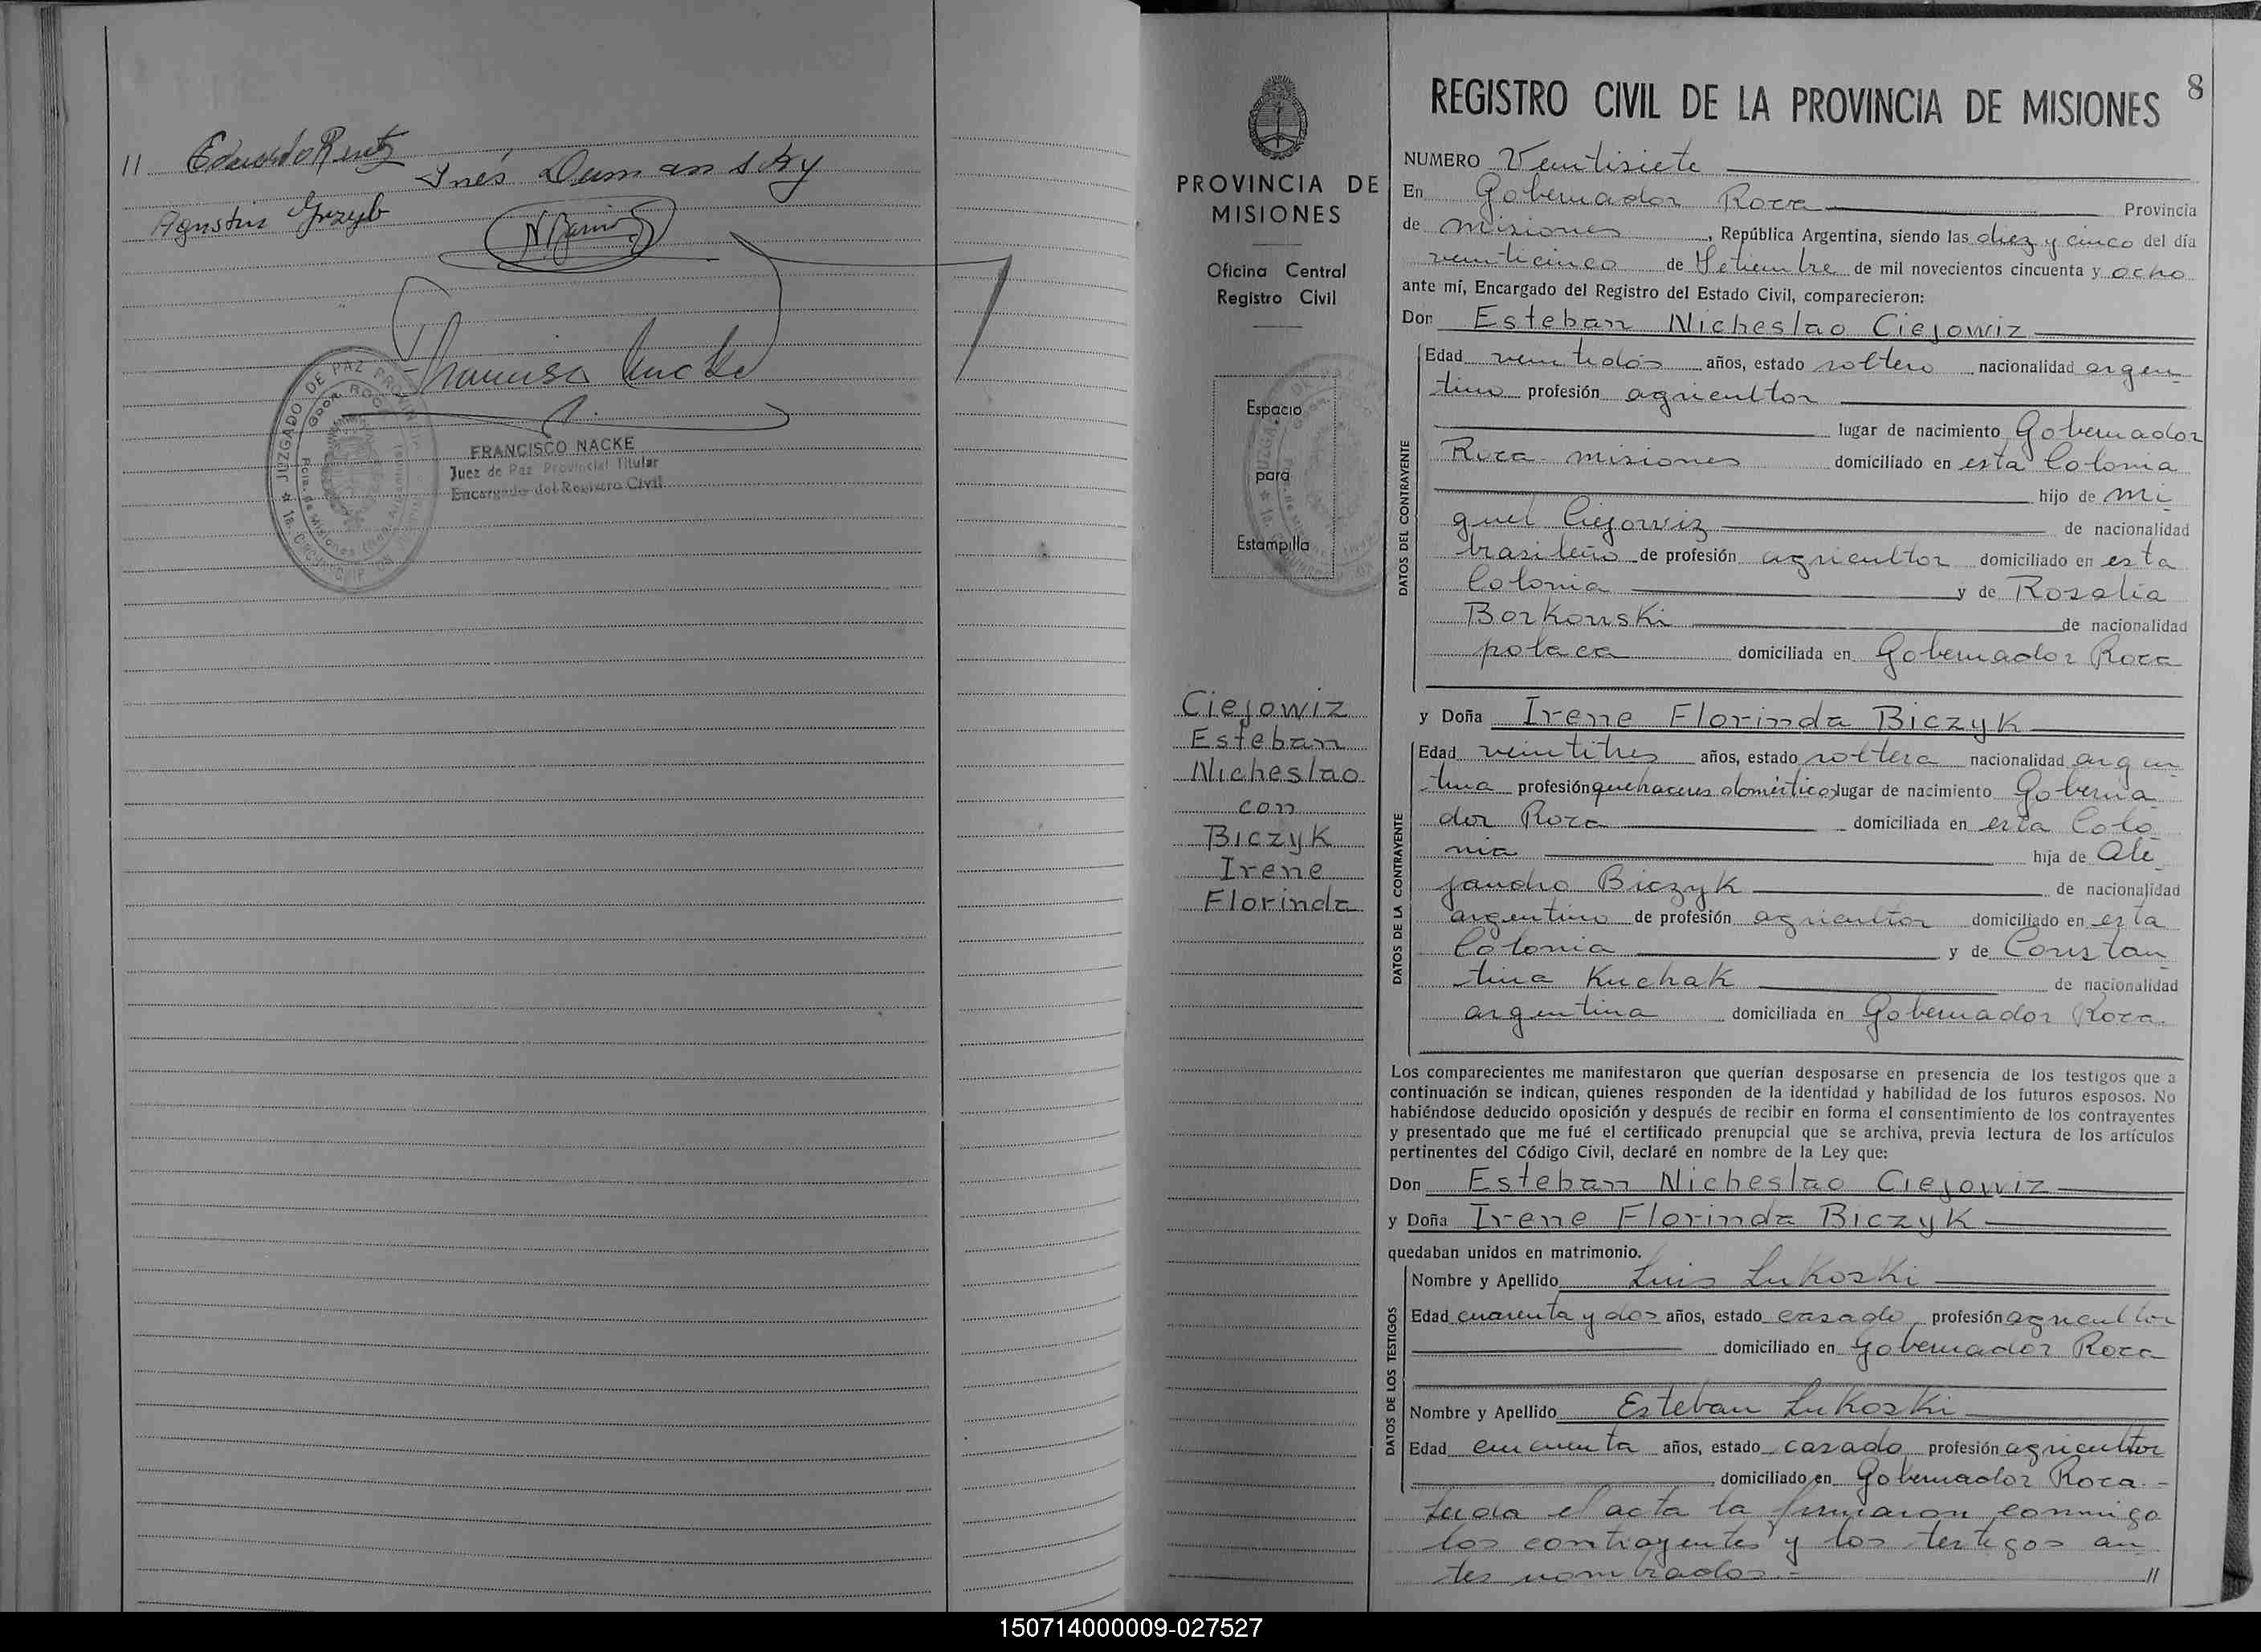 11 Eduardo Rentz
Inés Dumansky
Agustin Grzyb
FRANCISCO NACKE
Juez de Paz Provincial Titular
Encargado del Registro Civil
JUZGADO DE PAZ
8
PROVINCIA DE
MISIONES
Oficina Central
Registro Civil
Espacio
para
Estampilla
Ciejowiz
Esteban
Nicheslao
con
Biczyk
Irene
Florinda
REGISTRO CIVIL DE LA PROVINCIA DE MISIONES
NUMERO Veintisiete
En Gobernador Roca Provincia
de Misiones, República Argentina, siendo las diez y cinco del día
veinticinco de Setiembre de mil novecientos cincuenta y ocho
ante mí, Encargado del Registro del Estado Civil, comparecieron:
Don Esteban Nicheslao Ciejowiz
Edad veintidós años, estado soltero nacionalidad argen-
tino profesión agricultor
lugar de nacimiento Gobernador
Roca - misiones domiciliado en esta Colonia
hijo de Mi
guel Ciejowiz de nacionalidad
brasileño de profesión agricultor domiciliado en esta
Colonia y de Rosalia
Borkouski de nacionalidad
polaca domiciliada en Gobernador Roca
y Doña Irene Florinda Biczyk
Edad veintitres años, estado soltera nacionalidad argen
tina profesión quehaceres domésticos lugar de nacimiento Goberna
dor Roca domiciliada en esta Colo
nia hija de Ale
jandro Biczyk de nacionalidad
argentino de profesión agricultor domiciliado en esta
Colonia y de Constan
tina Kuchak de nacionalidad
argentina domiciliada en Gobernador Roca.
Los comparecientes me manifestaron que querían desposarse en presencia de los testigos que a
continuación se indican, quienes responden de la identidad y habilidad de los futuros esposos. No
habiéndose deducido oposición y después de recibir en forma el consentimiento de los contrayentes
y presentado que me fué el certificado prenupcial que se archiva, previa lectura de los artículos
pertinentes del Código Civil, declaré en nombre de la Ley que:
Don Esteban Nicheslao Ciejowiz
y Doña Irene Florinda Biczyk
quedaban unidos en matrimonio.
Nombre y Apellido Luis Lukoski
Edad cuarenta y dos años, estado casado profesión agricultor
domiciliado en Gobernador Roca
Nombre y Apellido Esteban Lukoski
Edad cincuenta años, estado casado profesión agricultor
domiciliado en Gobernador Roca. -
Leida el acta la firmaron conmigo
los contrayentes y los testigos an
tes nombrados. - //
DATOS DEL CONTRAYENTE
DATOS DE LA CONTRAYENTE
DATOS DE LOS TESTIGOS
150714000009-027527